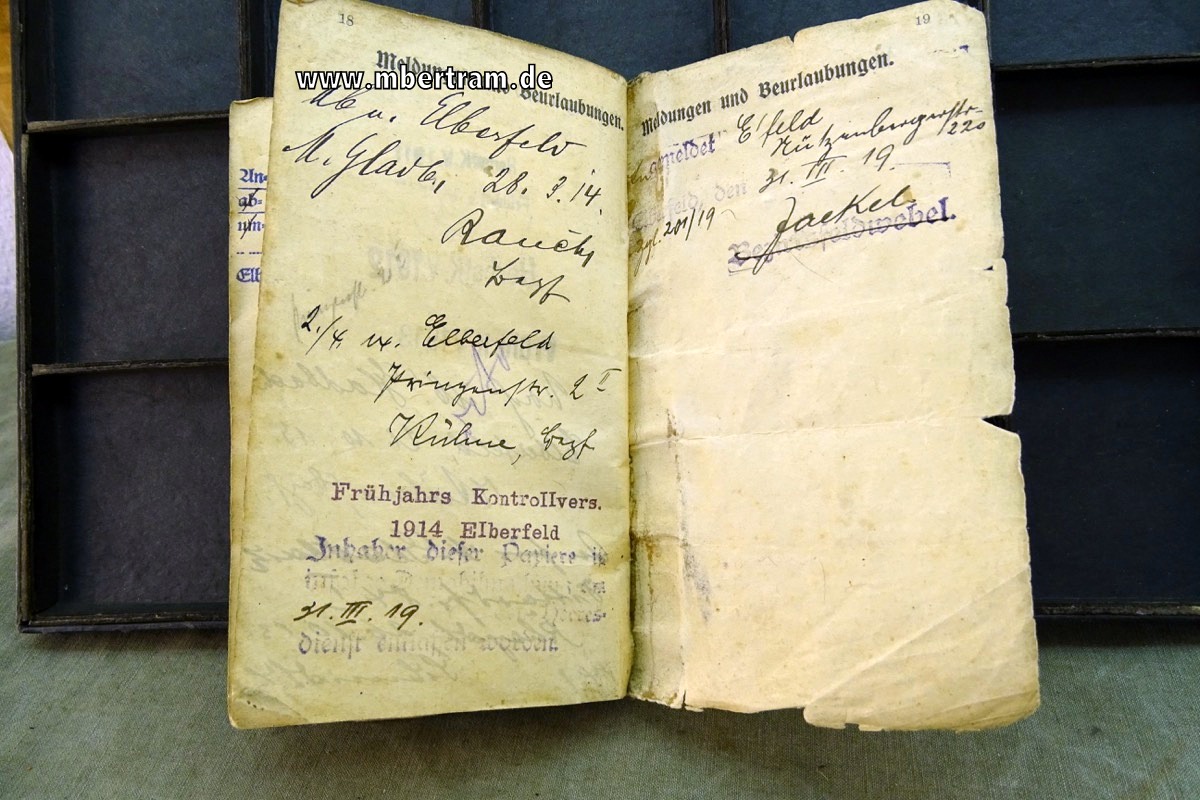 18
Meldungen und Beurlaubungen.
www.mbertram.de
Ab n. Elberfeld
M. Gladb. 28. 3. 14.
Bezf
2./4. v. Elberfeld
Prinzenstr. 2 II
Kühne, Bezf
Frühjahrs Kontrollvers.
1914 Elberfeld
Inhaber dieser Papiere ist
31. III. 19.
dienst entlassen worden.
An-
ab-
um-
Elb
19
Meldungen und Beurlaubungen.
angemeldet E'feld
Nützenbergerstr.
220
Elberfeld, den 31. III. 19.
201/19 Jaekel.
Bezirksfeldwebel.